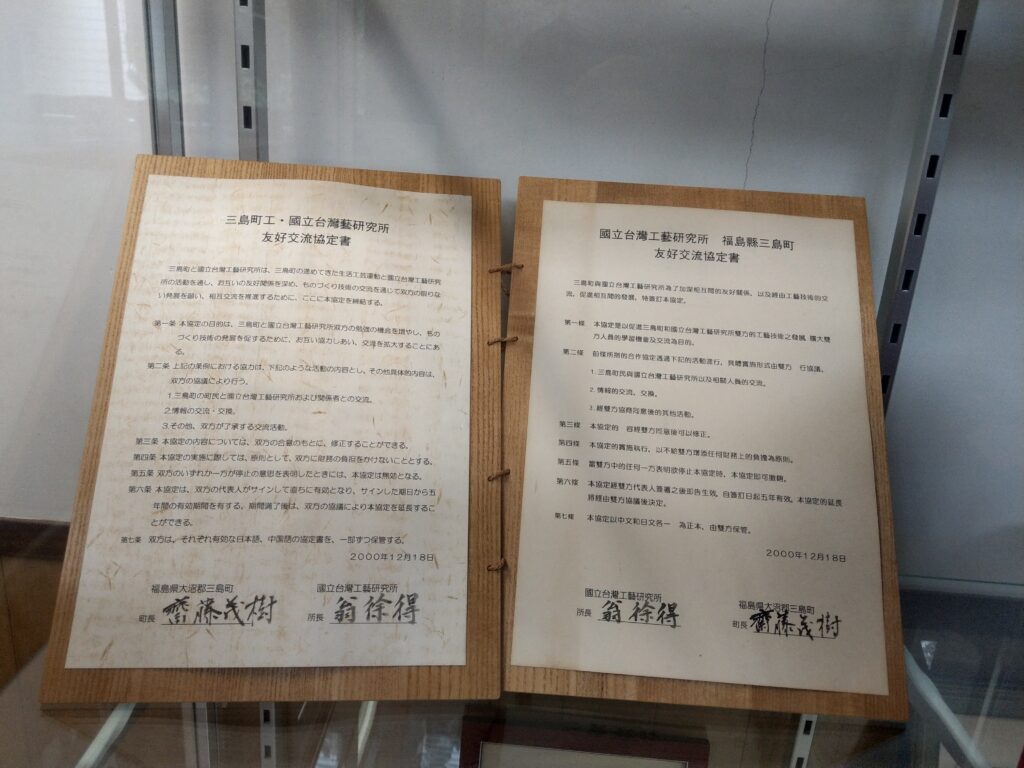 三島町工・國立台灣藝研究所
友好交流協定書
三島町と國立台灣工藝研究所は、三島町の進めてきた生活工芸運動と國立台灣工藝研究
所の活動を通し、お互いの友好関係を深め、ものづくり技術の交流を通じて双方の限りな
い発展を願い、相互交流を推進するために、ここに本協定を締結する。
第一条 本協定の目的は、三島町と國立台灣工藝研究所双方の勉強の機会を増やし、もの
づくり技術の発展を促するために、お互い協力しあい、交流を拡大することにあ
る。
第二条 上記の条例における協力は、下記のような活動の内容とし、その他具体的内容は、
双方の協議により行う。
1.三島町の町民と國立台灣工藝研究所および関係者との交流。
2.情報の交流・交換。
3.その他、双方が了承する交流活動。
第三条 本協定の内容については、双方の合意のもとに、修正することができる。
第四条 本協定の実施に際しては、原則として、双方に財務の負担をかけないこととする。
第五条 双方のいずれか一方が停止の意思を表明したときには、本協定は無効となる。
第六条 本協定は、双方の代表人がサインして直ちに有効となり、サインした期日から五
年間の有効期間を有する。期間満了後は、双方の協議により本協定を延長するこ
とができる。
第七条 双方は、それぞれ有効な日本語、中国語の協定書を、一部ずつ保管する。
2000年12月18日
福島県大沼郡三島町
町長 齋藤茂樹
國立台灣工藝研究所
所長 翁徐得
國立台灣工藝研究所 福島縣三島町
友好交流協定書
三島町與國立台灣工藝研究所為了加深相互間的友好關係、以及經由工藝技術的交
流、促進相互間的發展、特簽訂本協定。
第一條 本協定是以促進三島町和國立台灣工藝研究所雙方的工藝技術之發展、擴大雙
方人員的學習機會及交流為目的。
第二條 前條所測的合作協定透過下記的活動進行，具體實施形式由雙方 行協議。
1.三島町民與國立台灣工藝研究所以及相關人員的交流。
2.情報的交流、交換。
3.經雙方協商同意後的其他活動。
第三條 本協定的 容經雙方同意後可以修正。
第四條 本協定的實施執行，以不給雙方增添任何財務上的負擔為原則。
第五條 當雙方中的任何一方表明欲停止本協定時、本協定即可撤銷。
第六條 本協定經雙方代表人簽署之後即告生效。自簽訂日起五年有效。本協定的延長
將經由雙方協議後決定。
第七條 本協定以中文和日文各一 為正本、由雙方保管。
2000年12月18日
國立台灣工藝研究所
所長 翁徐得
福島県大沼郡三島町
町長 齋藤茂樹